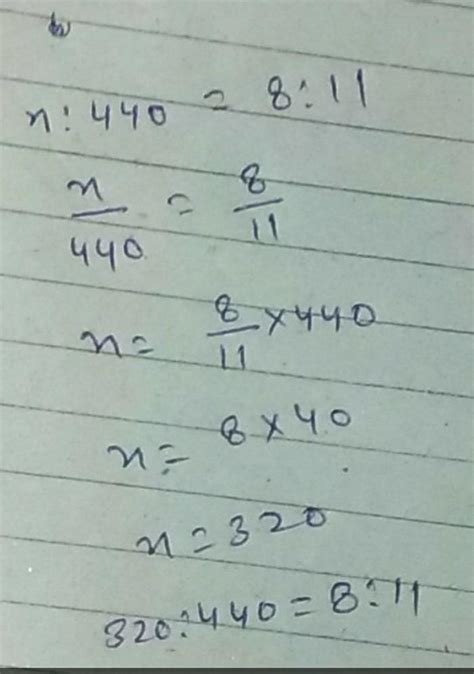 n : 440 = 8 : 11
n/440 = 8/11
n = 8/11 × 440
n = 8 × 40
n = 320
320 : 440 = 8 : 11